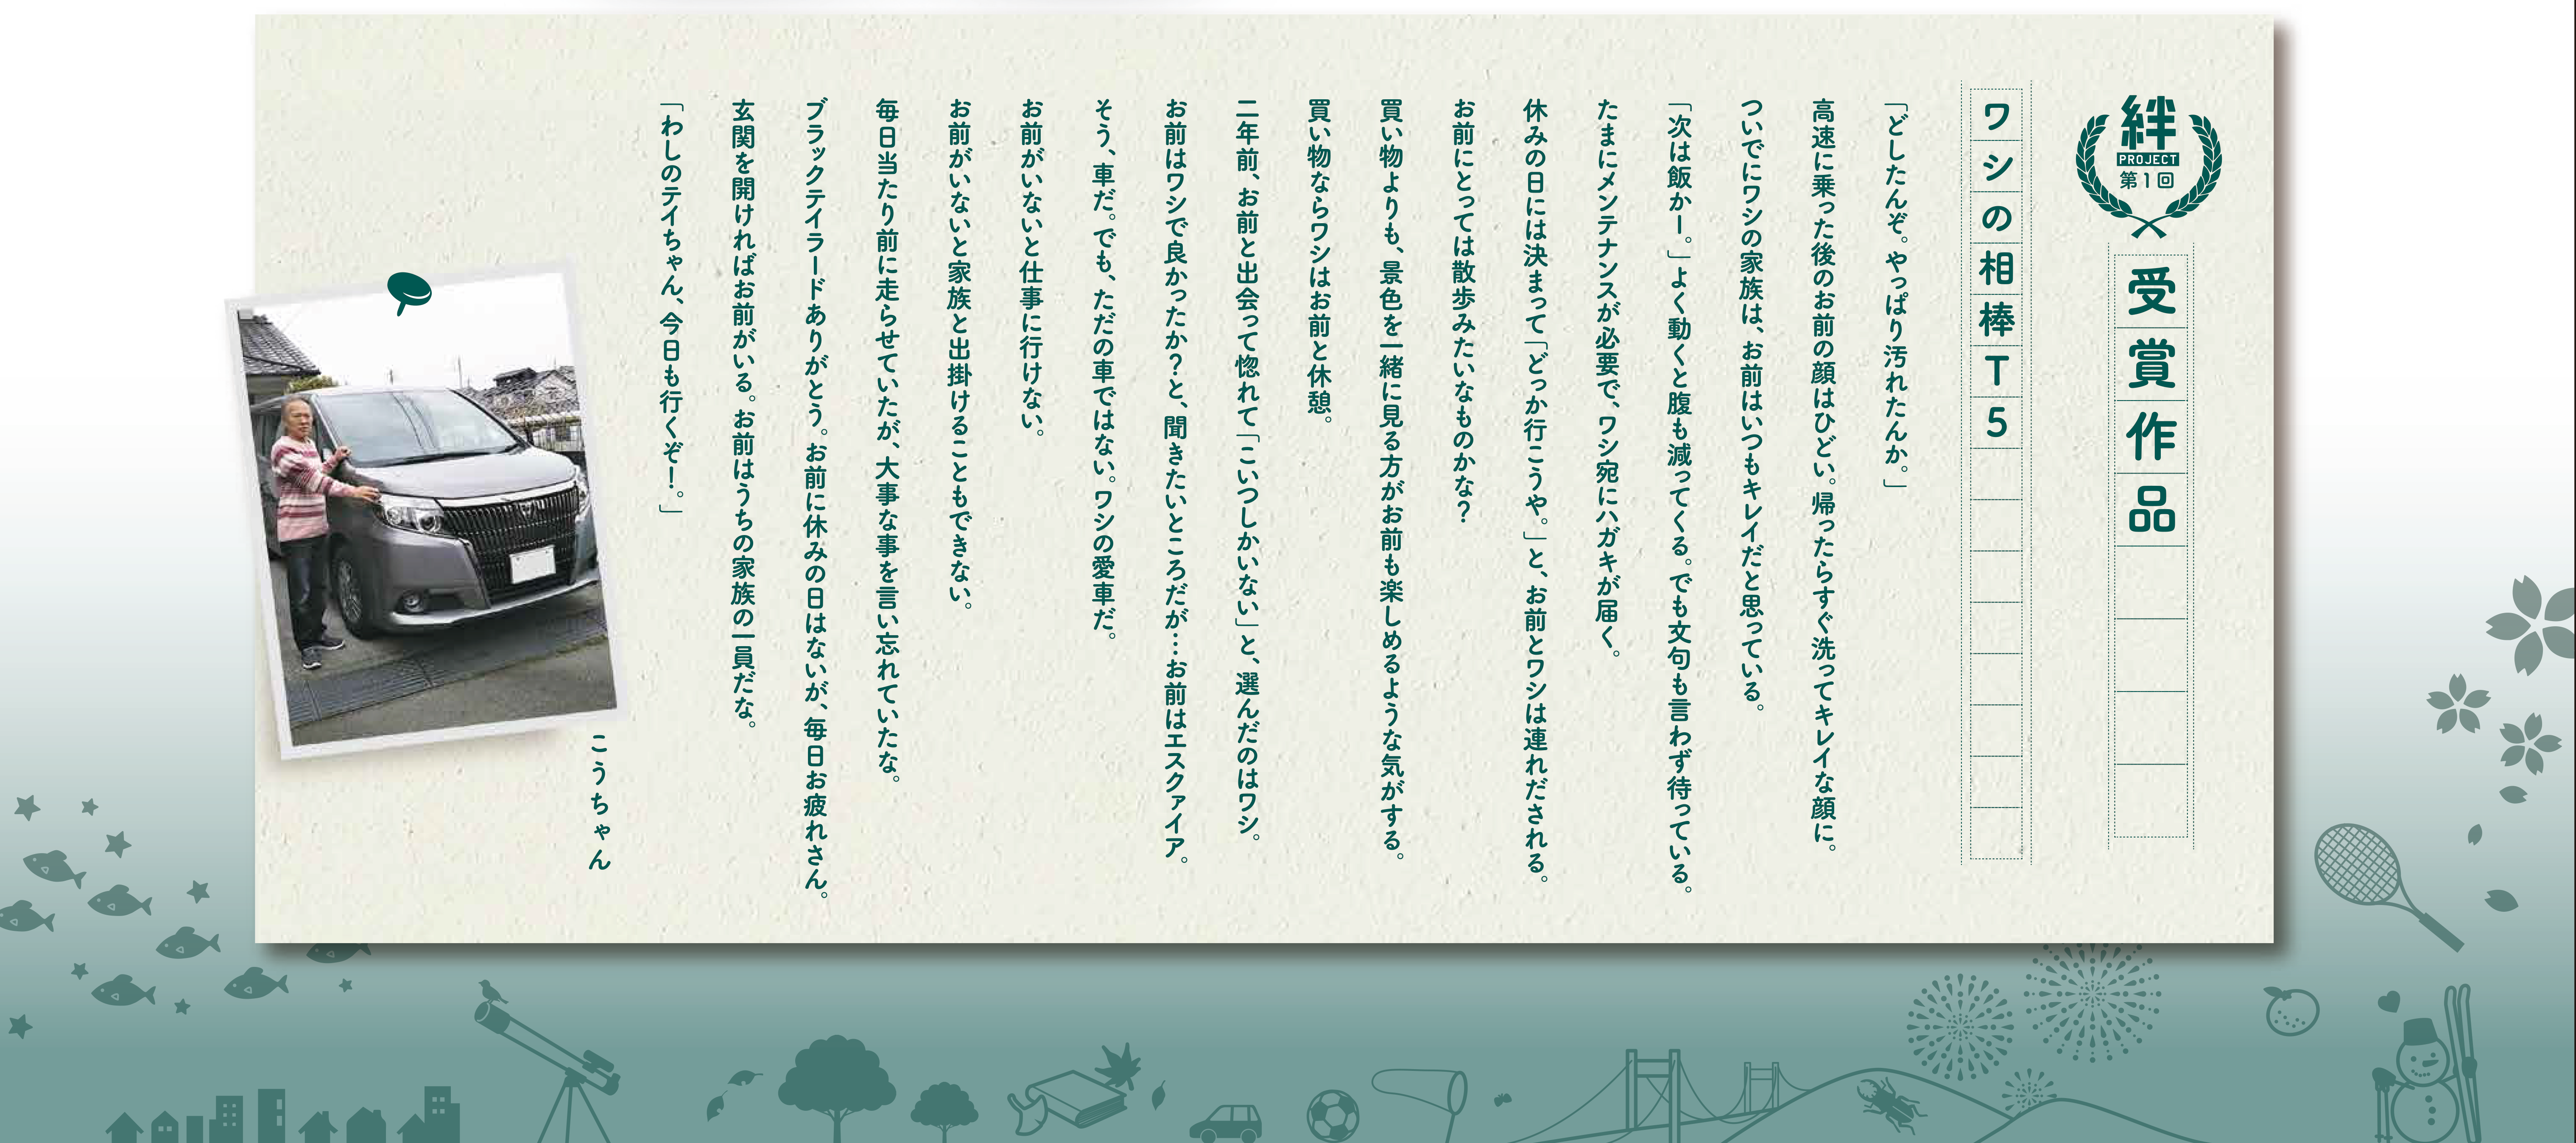 絆
PROJECT
第1回
受賞作品
ワシの相棒T5
「どしたんぞ。やっぱり汚れたんか。」
高速に乗った後のお前の顔はひどい。帰ったらすぐ洗ってキレイな顔に。
ついでにワシの家族は、お前はいつもキレイだと思っている。
「次は飯かー。」よく動くと腹も減ってくる。でも文句も言わず待っている。
たまにメンテナンスが必要で、ワシ宛にハガキが届く。
休みの日には決まって「どっか行こうや。」と、お前とワシは連れだされる。
お前にとっては散歩みたいなものかな?
買い物よりも、景色を一緒に見る方がお前も楽しめるような気がする。
買い物ならワシはお前と休憩。
二年前、お前と出会って惚れて「こいつしかいない」と、選んだのはワシ。
お前はワシで良かったか?と、聞きたいところだが…お前はエスクァイア。
そう、車だ。でも、ただの車ではない。ワシの愛車だ。
お前がいないと仕事に行けない。
お前がいないと家族と出掛けることもできない。
毎日当たり前に走らせていたが、大事な事を言い忘れていたな。
ブラックテイラードありがとう。お前に休みの日はないが、毎日お疲れさん。
玄関を開ければお前がいる。お前はうちの家族の一員だな。
「わしのテイちゃん、今日も行くぞ!。」
こうちゃん